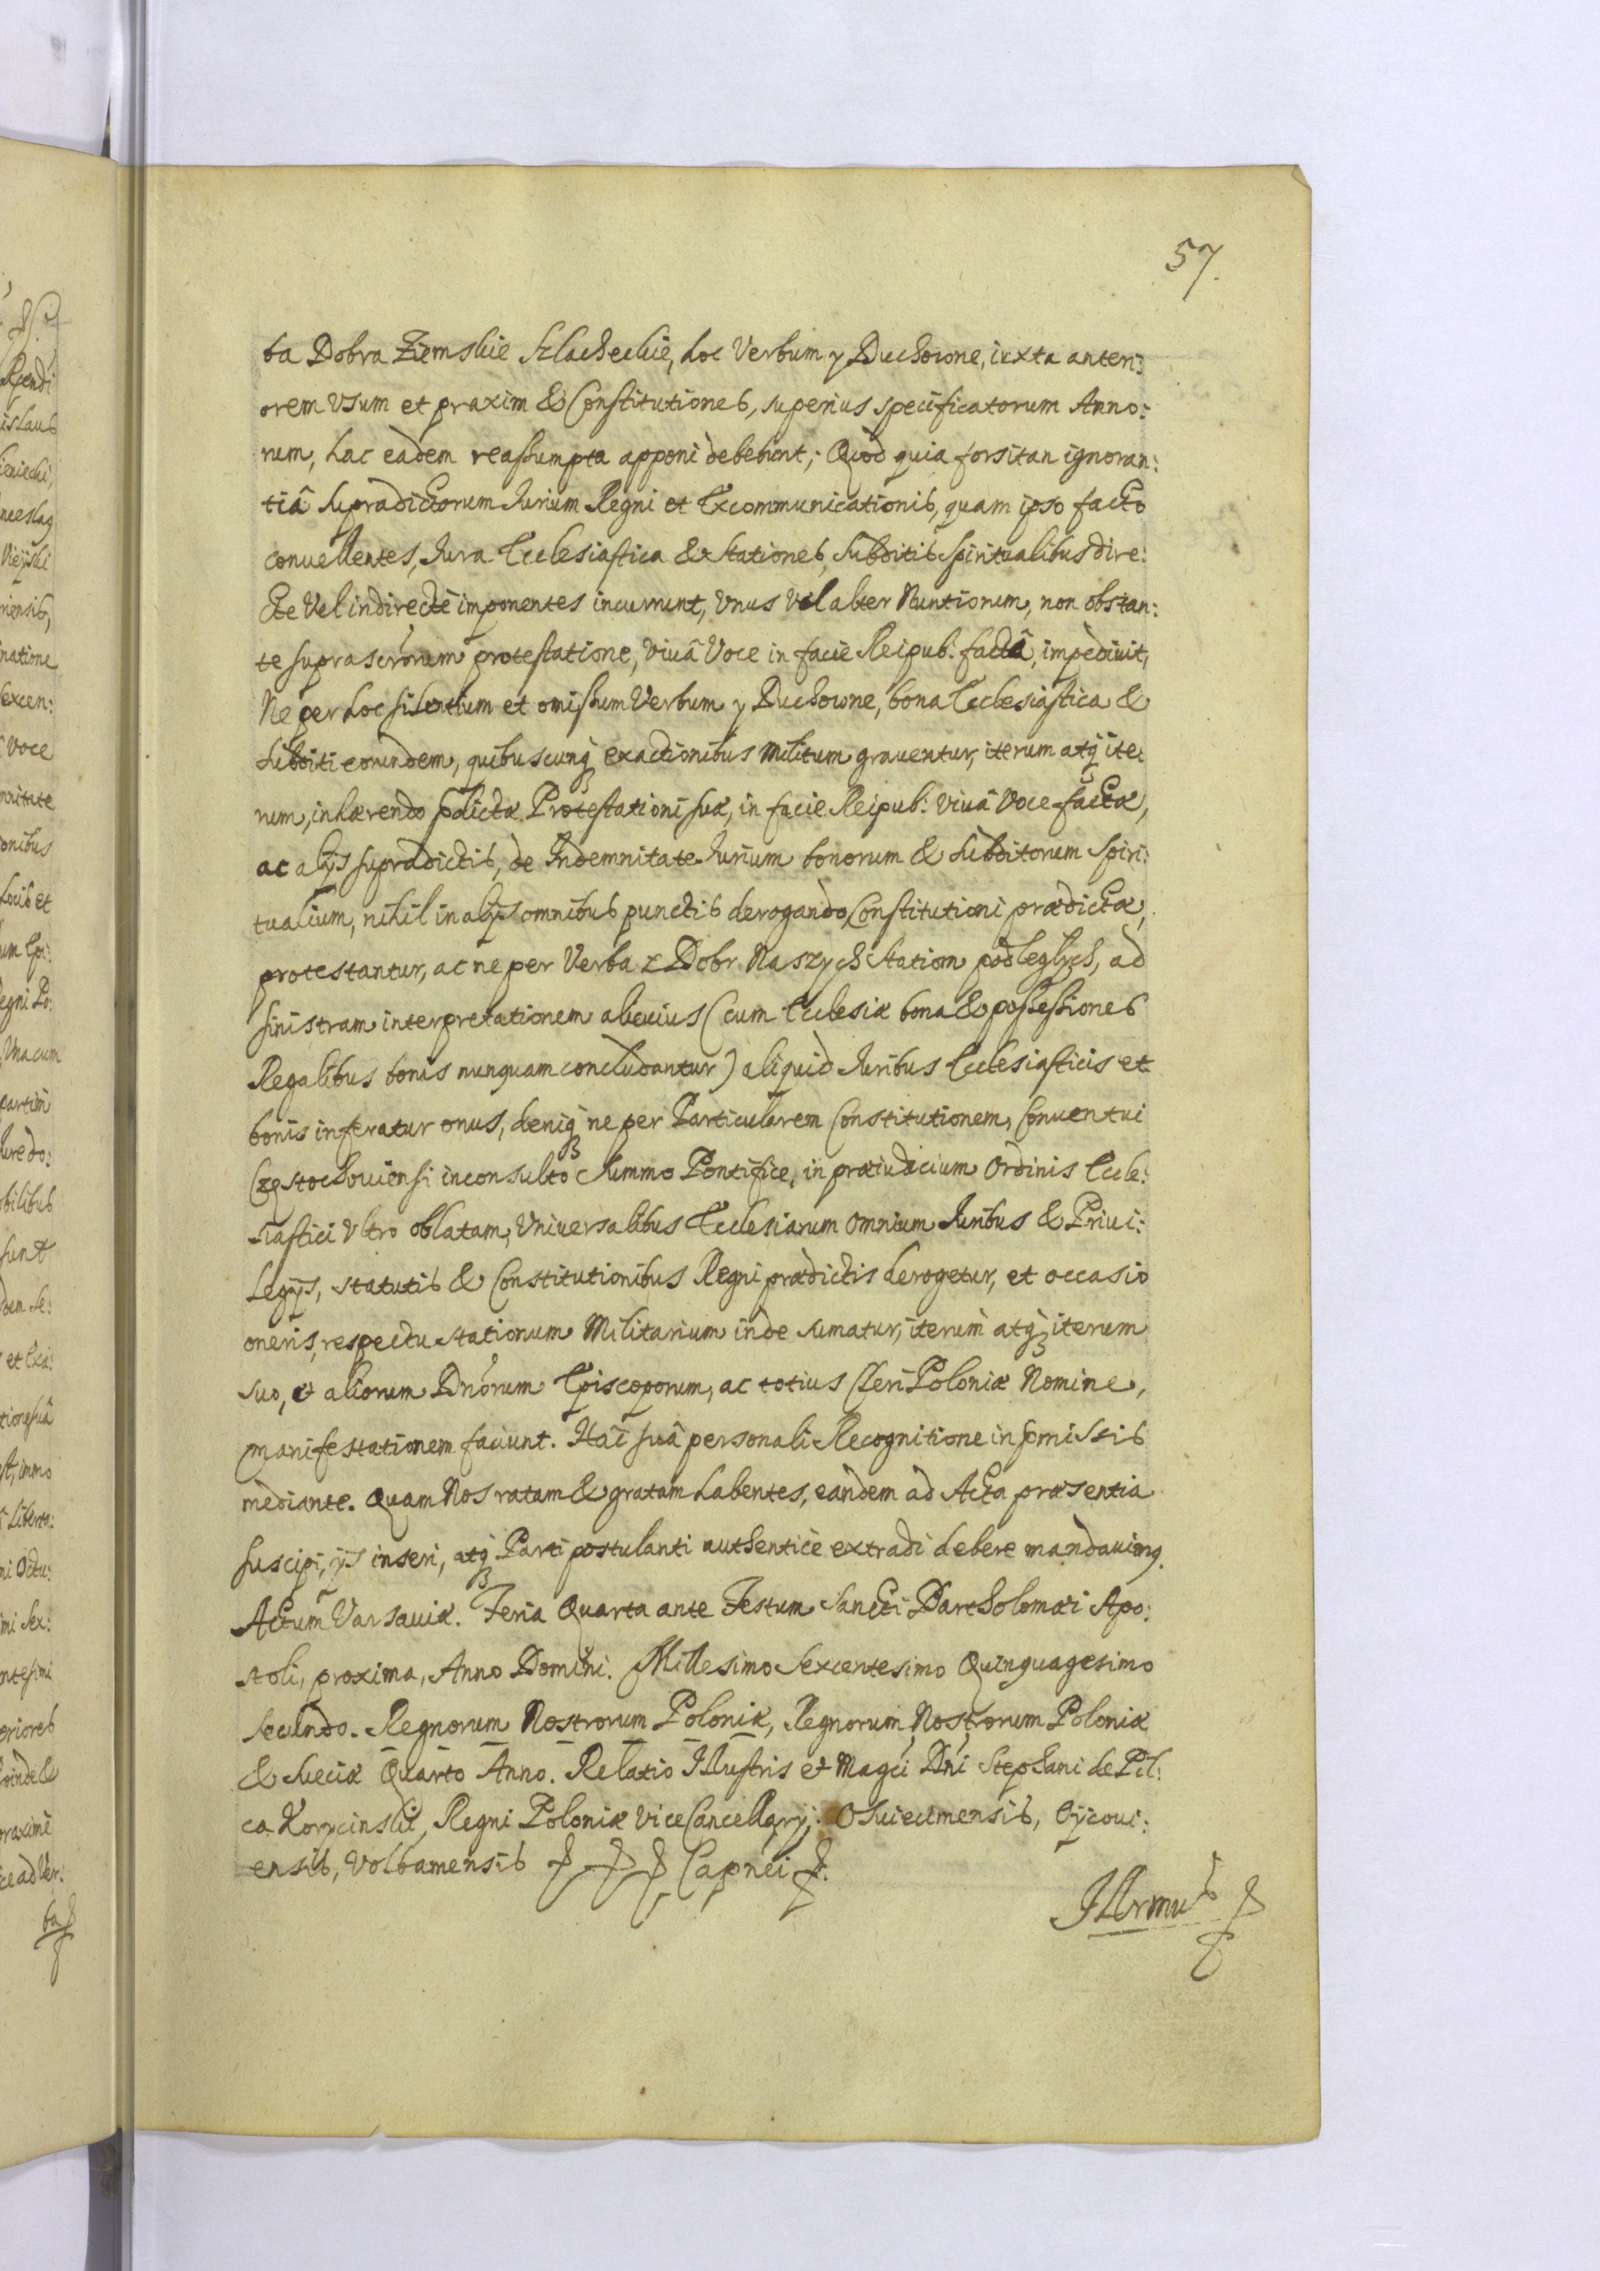 57.
ba Dobra Ziemskie Szlacheckie, hoc Verbum y Duchowne, iuxta anteri:
orem Vsum et praxim & Constitutiones, superius specificatorum Anno:
rum, hac eadem reassumpta apponi debebunt; Quod quia forsitan ignoran:
tiâ supradictorum Iurium Regni et Excommunicationis, quam ipso facto
conuellentes, Iura Ecclesiastica & stationes, Subditis Spiritualibus dire:
cte Vel indirecte imponentes incurrunt, Vnus Vel alter Nuntiorum, non obstan:
te suprascrorum protestatione, Viuâ Voce in facie Reipub. factâ, impediuit,
Ne per hoc silentium et omissum Verbum y Duchowne, bona Ecclesiastica &
Subditi eorundem, quibuscunq exactionibus Militum grauentur, iterum atq ite:
rum, inhærendo pdictæ Protestationi suæ, in facie Reipub: Viuâ Voce factæ,
ac alijs supradictis, de Indemnitate Iurium bonorum & Subditorum Spiri:
tualium, nihil in alijs omnibus punctis derogando Constitutioni prædictæ,
protestantur, ac ne per Verba z Dobr Naszych Statiom podległych, ad
sinistram interpretationem alicuius (cum Ecclesiæ bona & possessiones
Regalibus bonis nunquam concludantur) aliquid Iuribus Ecclesiasticis et
bonis inferatur onus, deniq ne per Particularem Constitutionem, Conuentui
Częstochouiensi inconsulto Summo Pontifice, in præiudicium Ordinis Eccle:
siastici Vltro oblatam, Vniuersalibus Ecclesiarum omnium Iuribus & Priui:
legijs, statutis & Constitutionibus Regni prædictis derogetur, et occasio
oneris, respectu stationum Militarium inde sumatur, iterum atq iterum
suo, & aliorum Dnorum Episcoporum, ac totius Cleri Poloniæ Nomine,
manifestationem faciunt. Hac suâ personali Recognitione in pmissis
mediante. Quam Nos ratam & gratam habentes, eandem ad Acta præsentia
suscipi, ijs inseri, atq Parti postulanti authentice extradi debere mandauimq.
Actum Varsauiæ. Feria Quarta ante Festum Sancti Bartholomæi Apo:
stoli, proxima, Anno Domini. Millesimo Sexcentesimo Quinquagesimo
Secundo. Regnorum Nostrorum Poloniæ, Regnorum Nostrorum Poloniæ
& Sueciæ Quarto Anno. Relatio Illustris et Magci Dni Stephani de Pil:
ca Korycinski, Regni Poloniæ ViceCancellarij: Osuiecimensis, Oÿcoui:
ensis, Volbamensis Capnei